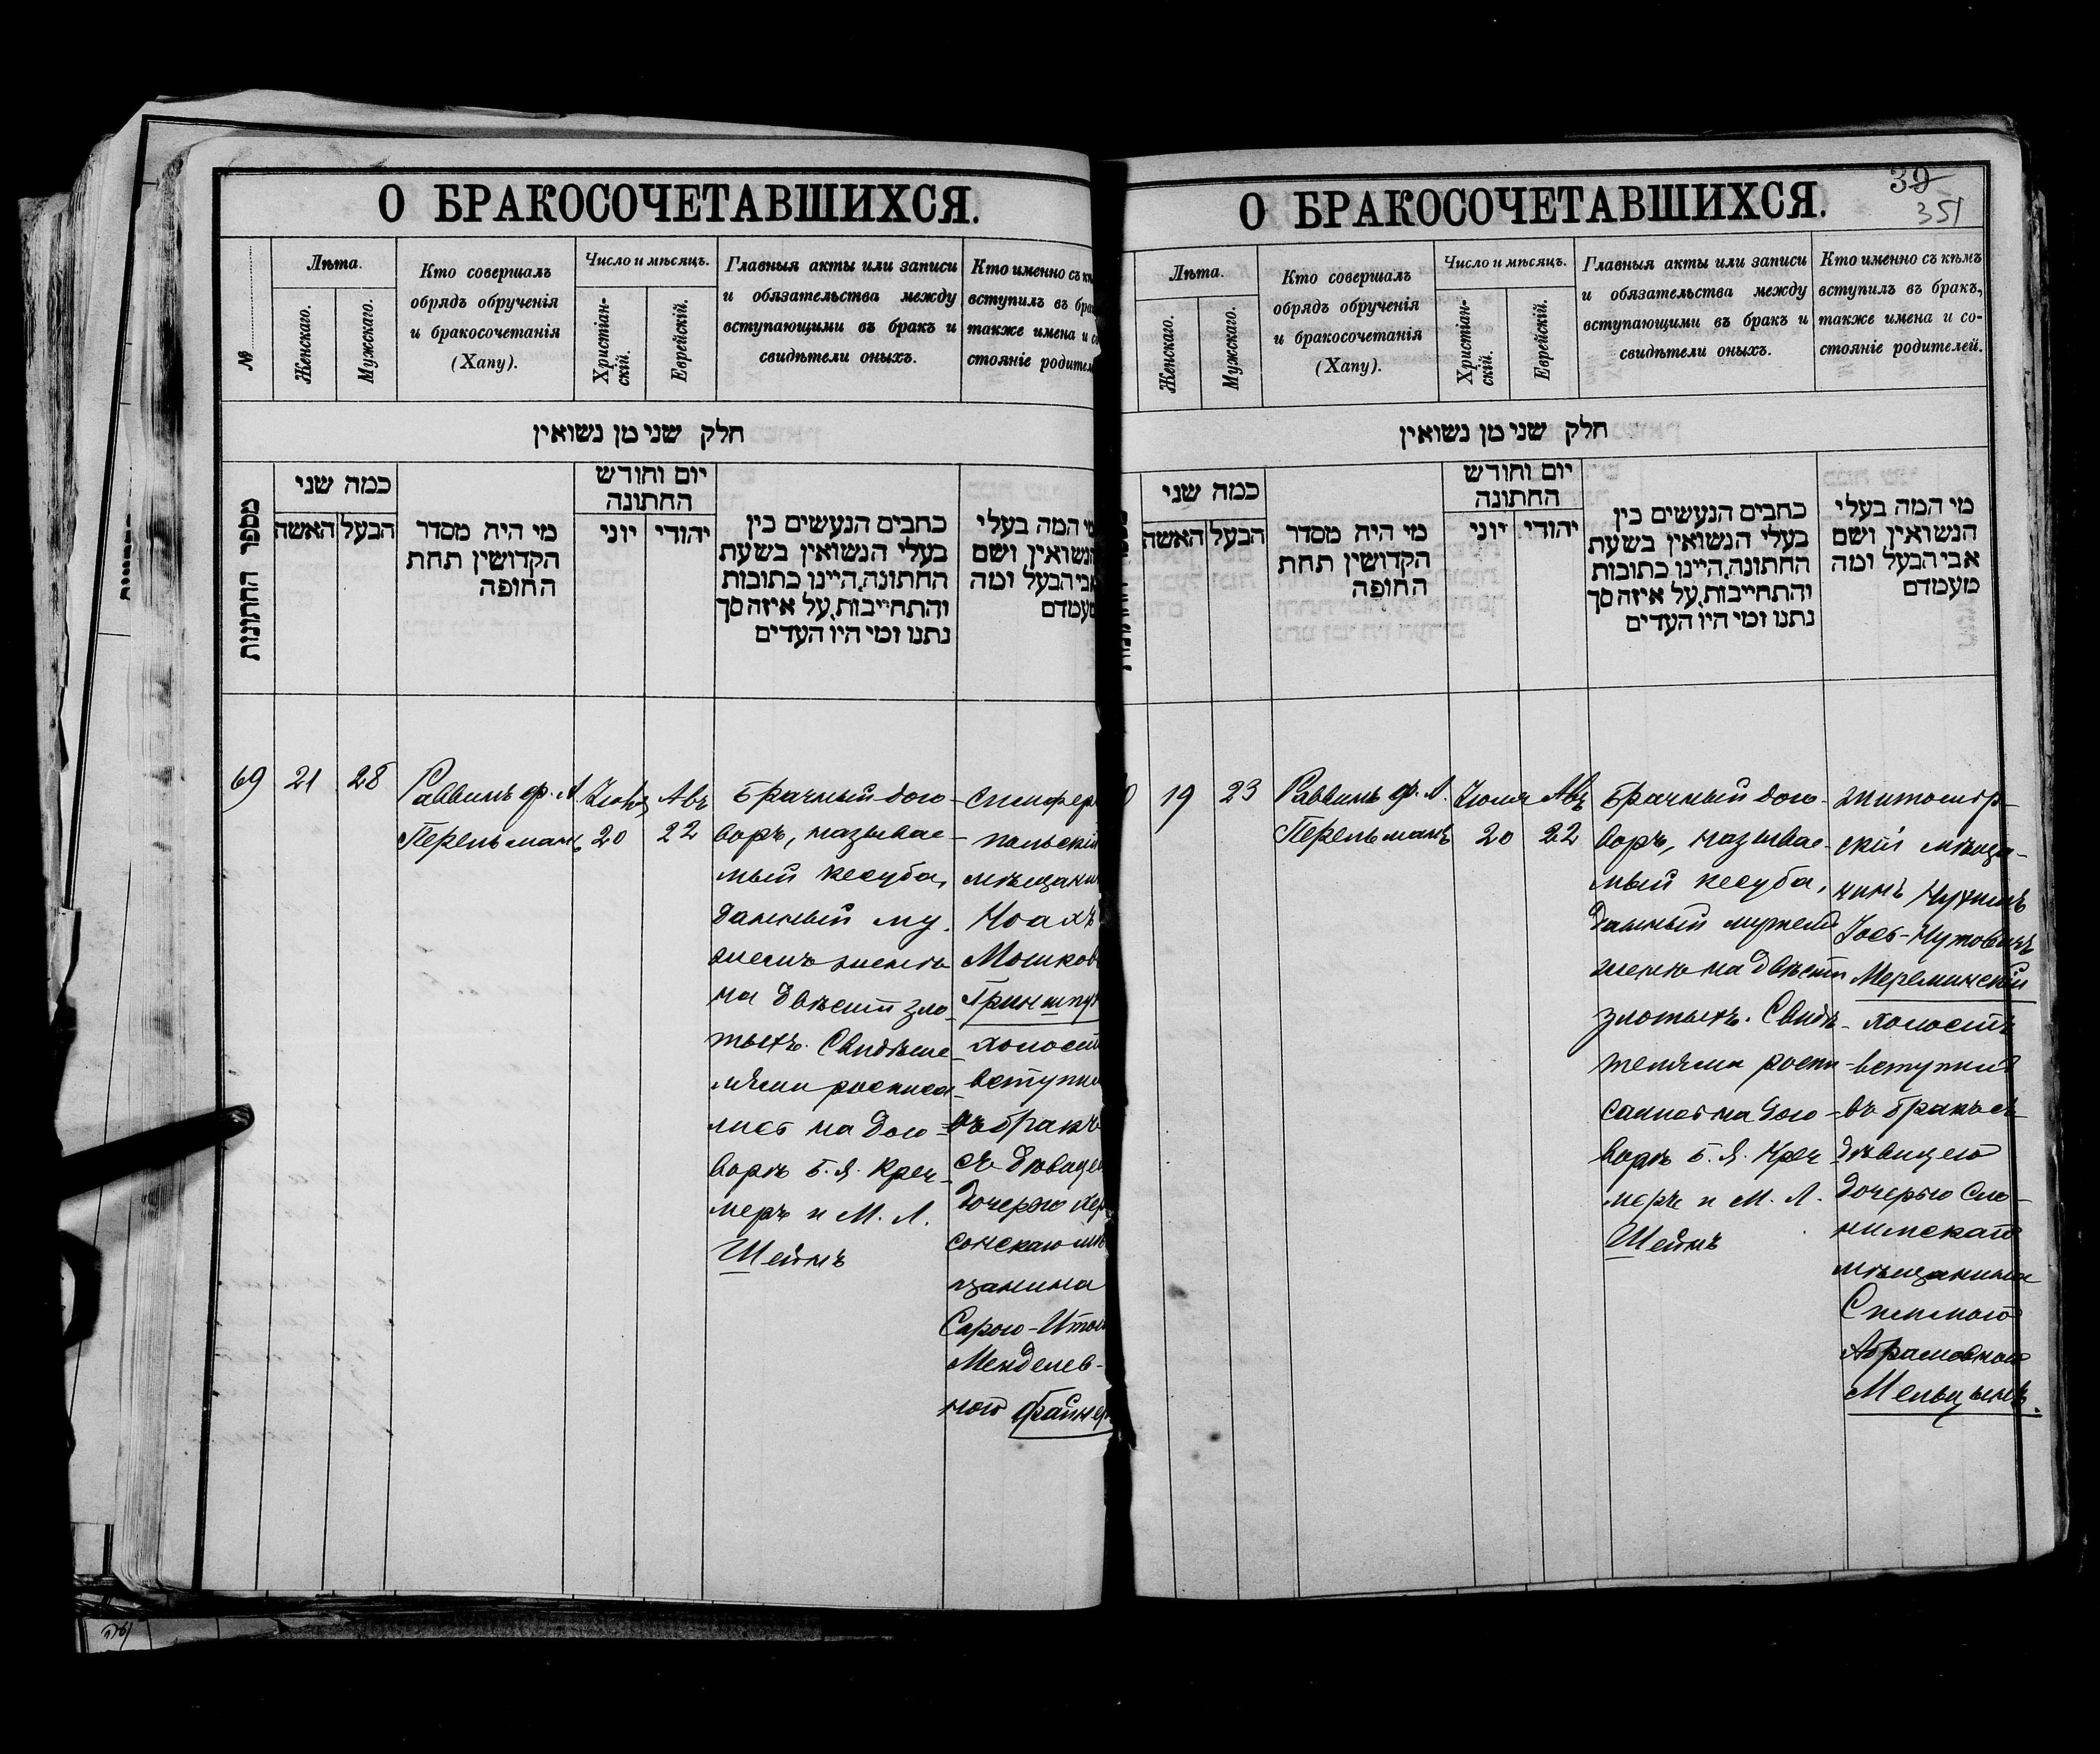 О БРАКОСОЧЕТАВШИХСЯ.
№
Лѣта.
Женскаго.
Мужскаго.
Кто совершалъ
обрядъ обрученія
и бракосочетанія
(Хапу).
Число и мѣсяцъ.
Христіан-
скій.
Еврейскій.
Главныя акты или записи
и обязательства между
вступающими въ бракъ и
свидѣтели оныхъ.
Кто именно съ
вступилъ въ
также имена и
стояніе
חלק שני מן נשואין
מספר החתונות
כמה שני
האשה
הבעל
מי היה מסדר
הקדושין תחת
החופה
יום וחודש
החתונה
יוני
יהודי
כתבים הנעשים בין
בעלי הנשואין בשעת
החתונה, היינו כתובות
והתחייבות, על איזה סך
נתנו ומי היו העדים
מי המה בעלי
הנשואין ושם
אבי הבעל ומה
מעמדם
69
21
28
Раввинъ ф. Л.
Перельманъ
Іюля
20
Авъ
22
Брачный дого-
воръ, называе-
мый кесуба,
данный му-
жемъ женѣ
на двѣсти зло-
тыхъ. Свидѣте-
лями росписа-
лись на дого-
ворѣ Б. Я. Креч-
меръ и М. Л.
Шейнъ
Симферо
польскій
мѣщанин
Ноахъ
Мошков
Гриншпу
холост
вступи
въ бракъ
съ дѣвице
дочерью Хер
сонскаго мѣ
щанина
Сарою-Ито
Менделев-
ной Файнер
О БРАКОСОЧЕТАВШИХСЯ.
39
351
Лѣта.
Женскаго.
Мужскаго.
Кто совершалъ
обрядъ обрученія
и бракосочетанія
(Хапу).
Число и мѣсяцъ.
Христіан-
скій.
Еврейскій.
Главныя акты или записи
и обязательства между
вступающими въ бракъ и
свидѣтели оныхъ.
Кто именно съ кѣмъ
вступилъ въ бракъ,
также имена и со-
стояніе родителей.
חלק שני מן נשואין
כמה שני
האשה
הבעל
מי היה מסדר
הקדושין תחת
החופה
יום וחודש
החתונה
יוני
יהודי
כתבים הנעשים בין
בעלי הנשואין בשעת
החתונה, היינו כתובות
והתחייבות, על איזה סך
נתנו ומי היו העדים
מי המה בעלי
הנשואין ושם
אבי הבעל ומה
מעמדם
19
23
Раввинъ ф. Л.
Перельманъ
Іюля
20
Авъ
22
Брачный дого-
воръ, называе-
мый кесуба,
данный мужемъ
женѣ на двѣсти
злотыхъ. Свидѣ-
телями роспи-
сались на дого-
ворѣ Б. Я. Креч
меръ и М. Л.
Шейнъ
Житомір-
скій мѣща-
нинъ Нухимъ
Іось-Нутовичъ
Мереминскій
холостъ
вступилъ
въ бракъ съ
дѣвицею
дочерью Сло-
нимскаго
мѣщанина
Симою
Абрамовной
Мельцынъ.